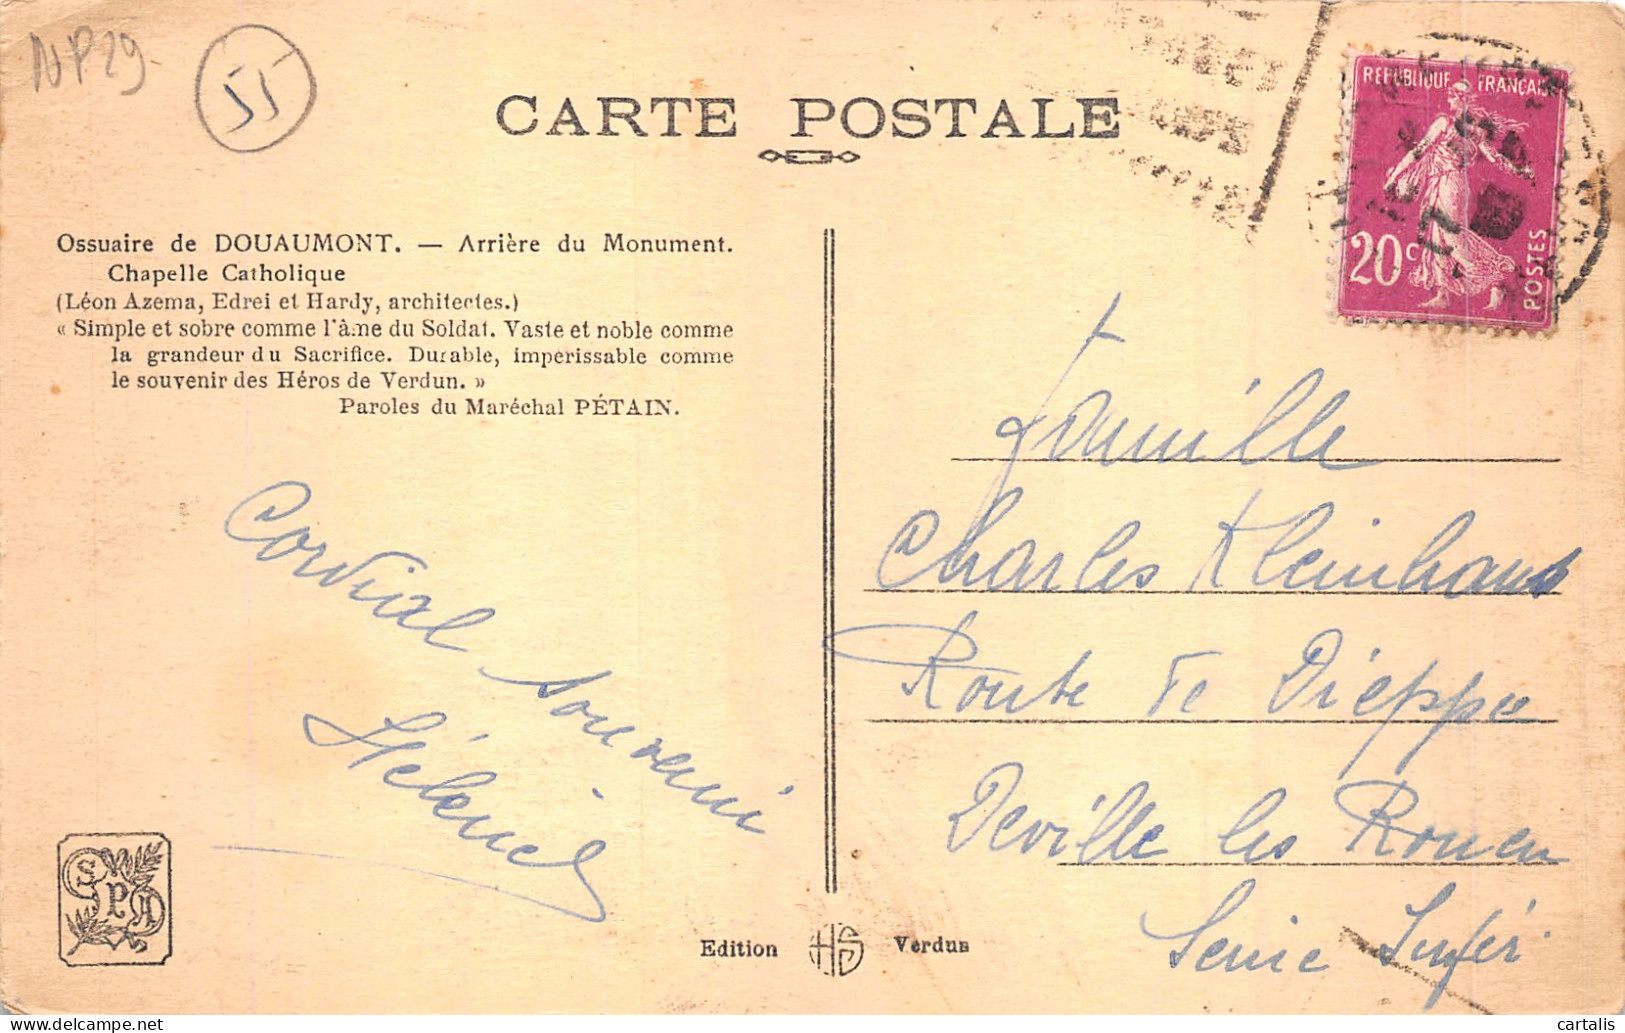 NP29-
55
CARTE POSTALE
REPUBLIQUE FRANÇAISE
20c
POSTES
Ossuaire de DOUAUMONT. — Arrière du Monument.
Chapelle Catholique
(Léon Azema, Edrei et Hardy, architectes.)
« Simple et sobre comme l'âme du Soldat. Vaste et noble comme
la grandeur du Sacrifice. Durable, impérissable comme
le souvenir des Héros de Verdun. »
Paroles du Maréchal PÉTAIN.
Cordial souvenir
Famille
Charles Kleinhans
Route de Dieppe
Deville les Rouen
Seine Infér.
SPA
Edition HS Verdun
cartalis